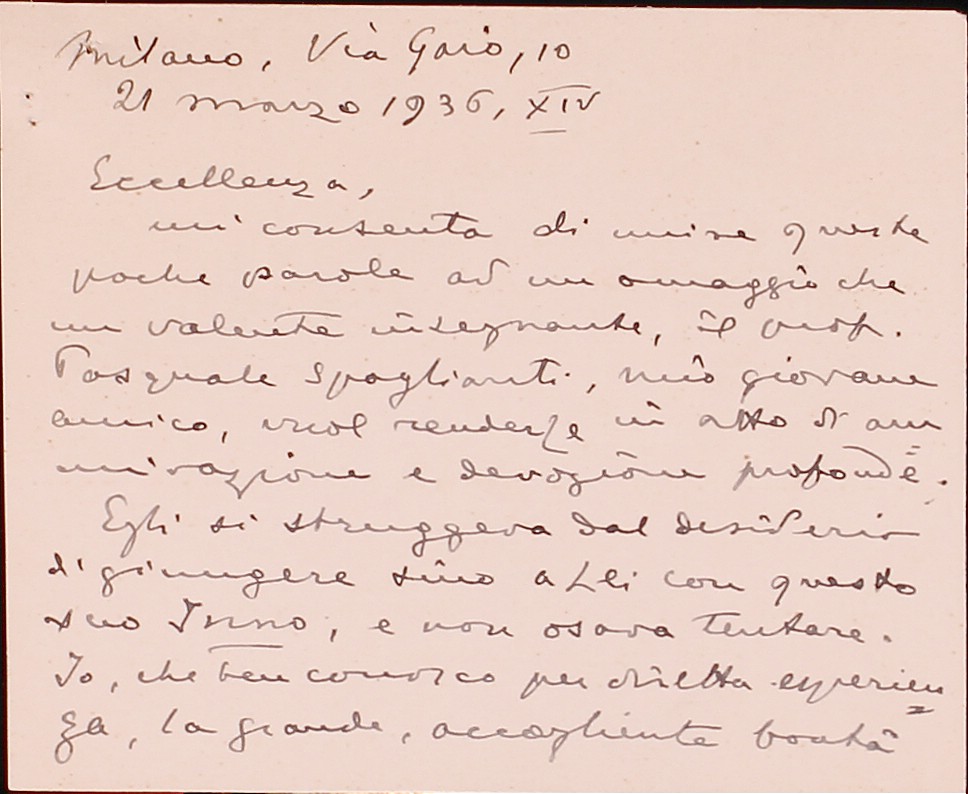 Milano, Via Gaio, 10
21 marzo 1936, XIV
Eccellenza,
mi consenta di unire queste
poche parole ad un omaggio che
un valente insegnante, il prof.
Pasquale Spaglianti, mio giovane
amico, vuol renderLe in atto di am
mirazione e devozione profonde.
Egli si struggeva dal desiderio
di giungere sino a Lei con questo
suo Inno, e non osava tentare.
Io, che ben conosco per diretta esperien
za, la grande, accogliente bontà